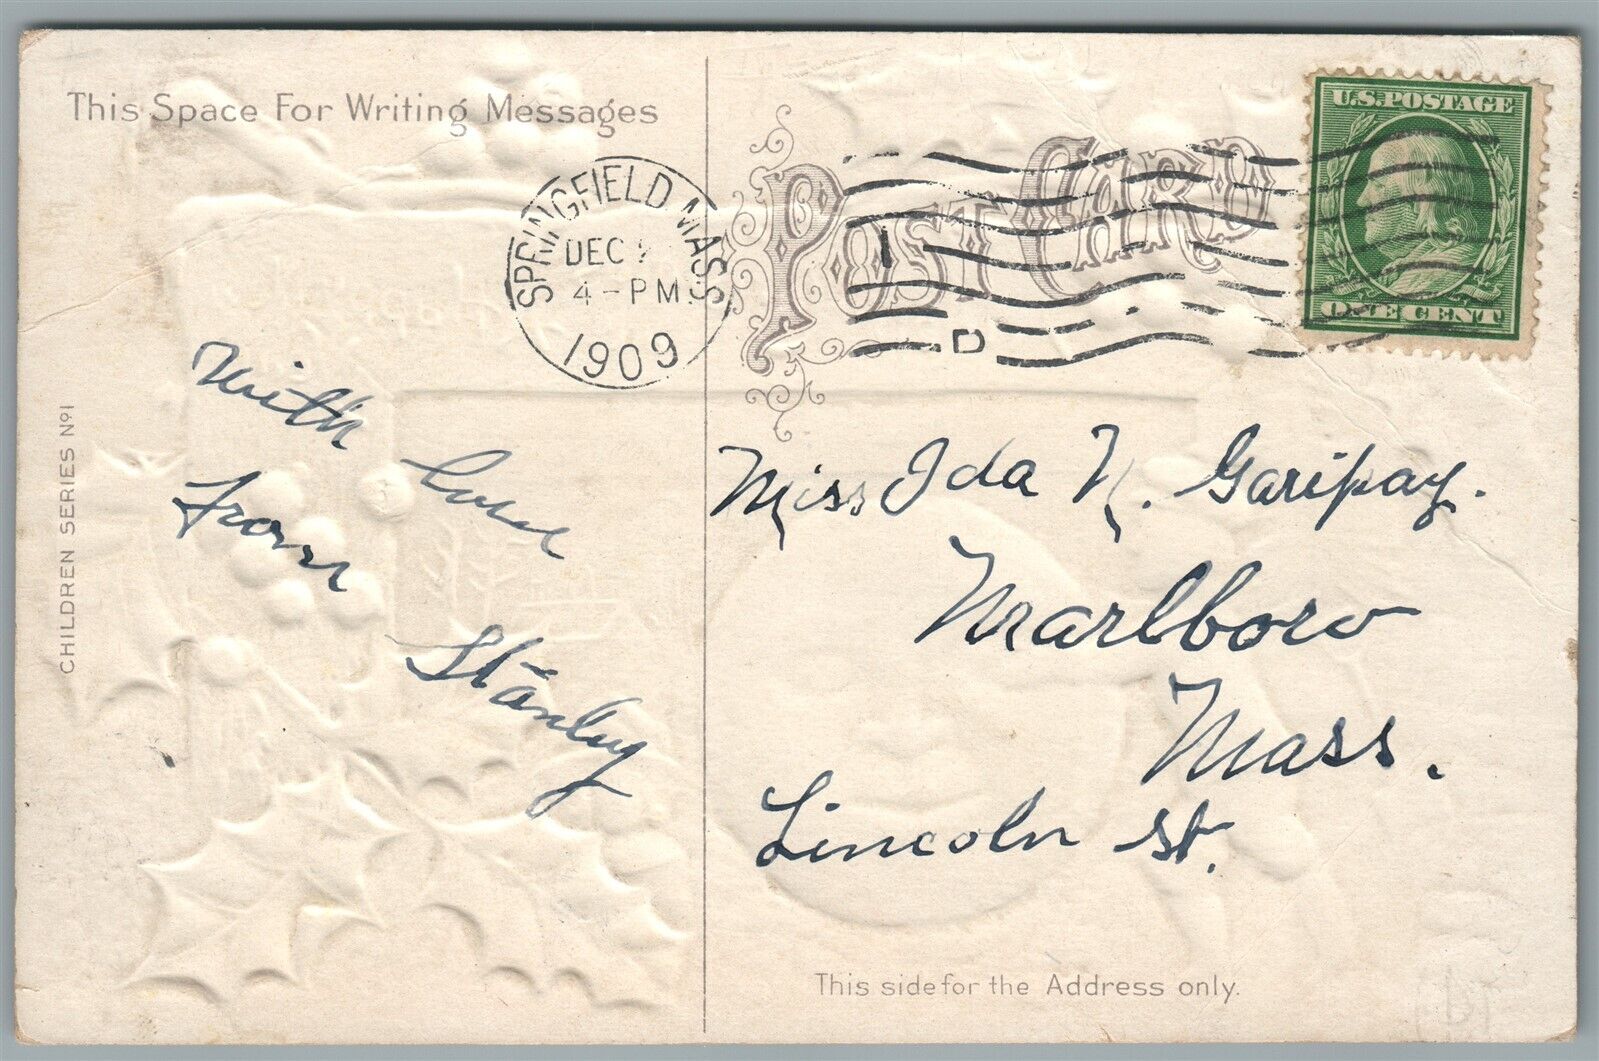 This Space For Writing Messages
POST CARD
U.S. POSTAGE
ONE CENT
SPRINGFIELD, MASS.
DEC
4-PM
1909
1
D
With Love
From
Stanley
Miss Ida N. Garipay.
Marlboro
Mass.
Lincoln St.
CHILDREN SERIES Nº1
This side for the Address only.